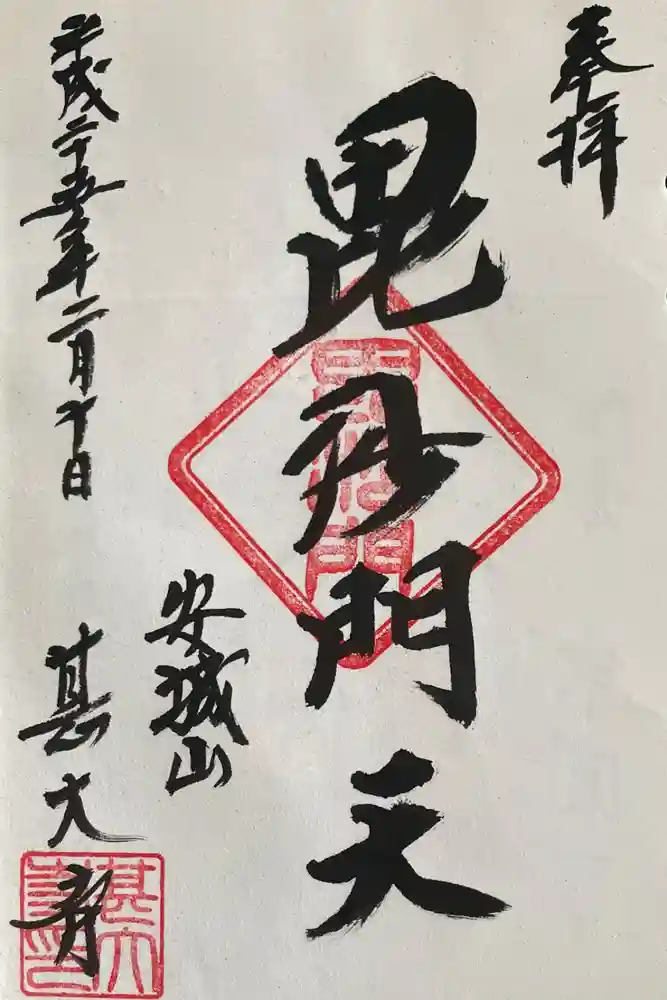 奉拝
毘沙門天
毘沙門
安城山
平成二十五年二月十日
甚大寺
甚大
寺印